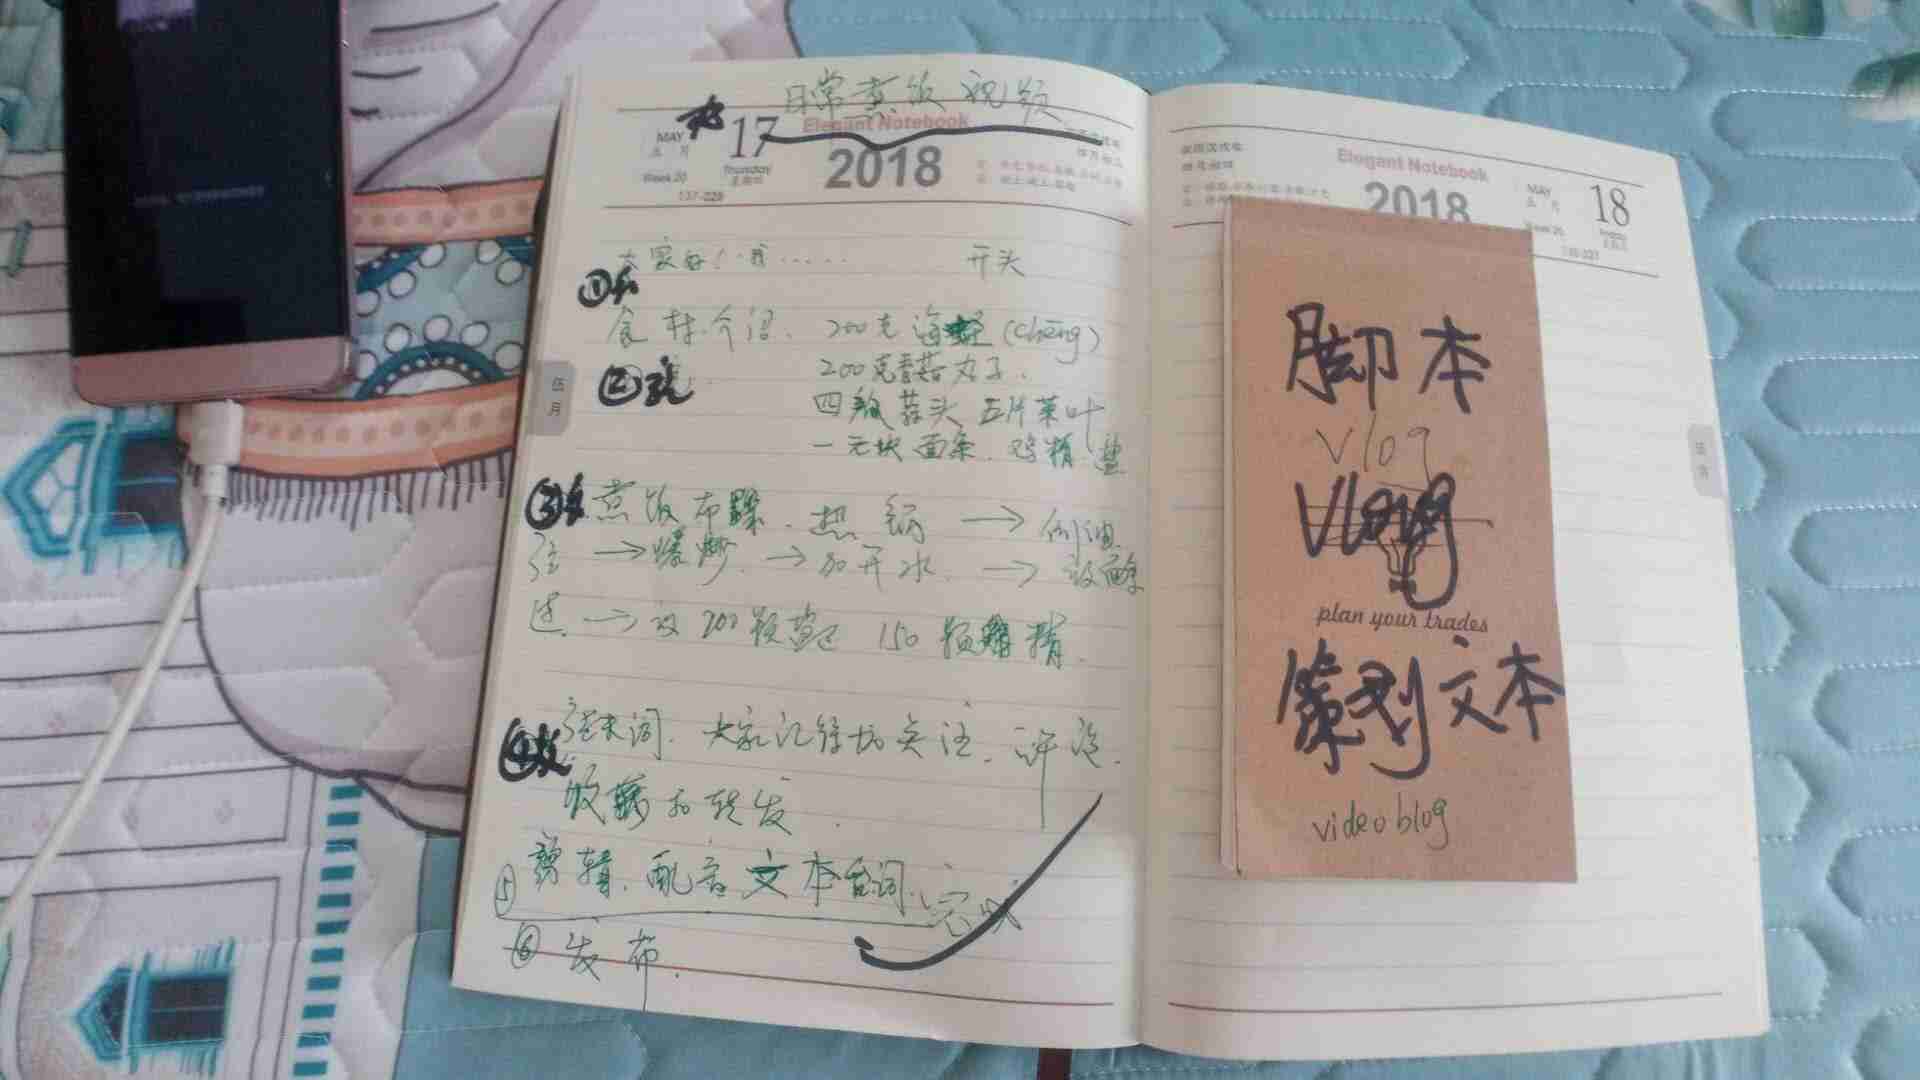 日常煮饭视频
MAY 17 Elegant Notebook
五 月 Thursday 2018
Week 20 星期四
137-228
大家好！我…… 开头
①
食材介绍、200克海蛏(chēng)
② 200克香菇丸子、
四颗蒜头 五片菜叶
一元块面条、鸡精 盐
③ 煮饭布骤、热锅 → 倒油
→ 爆炒、→ 加开水、→ 放面条
→ 放200颗盐 150颗鸡精、
④ 结末词、大家记得加关注、评论、
收藏和转发、
⑤ 剪辑、配音 文本台词、完成
⑥ 发布、
伍
月
Elegant Notebook MAY 18
2018 五 月 Friday
Week 20
脚本
Vlog
Vlog
plan your trades
策划文本
video blog